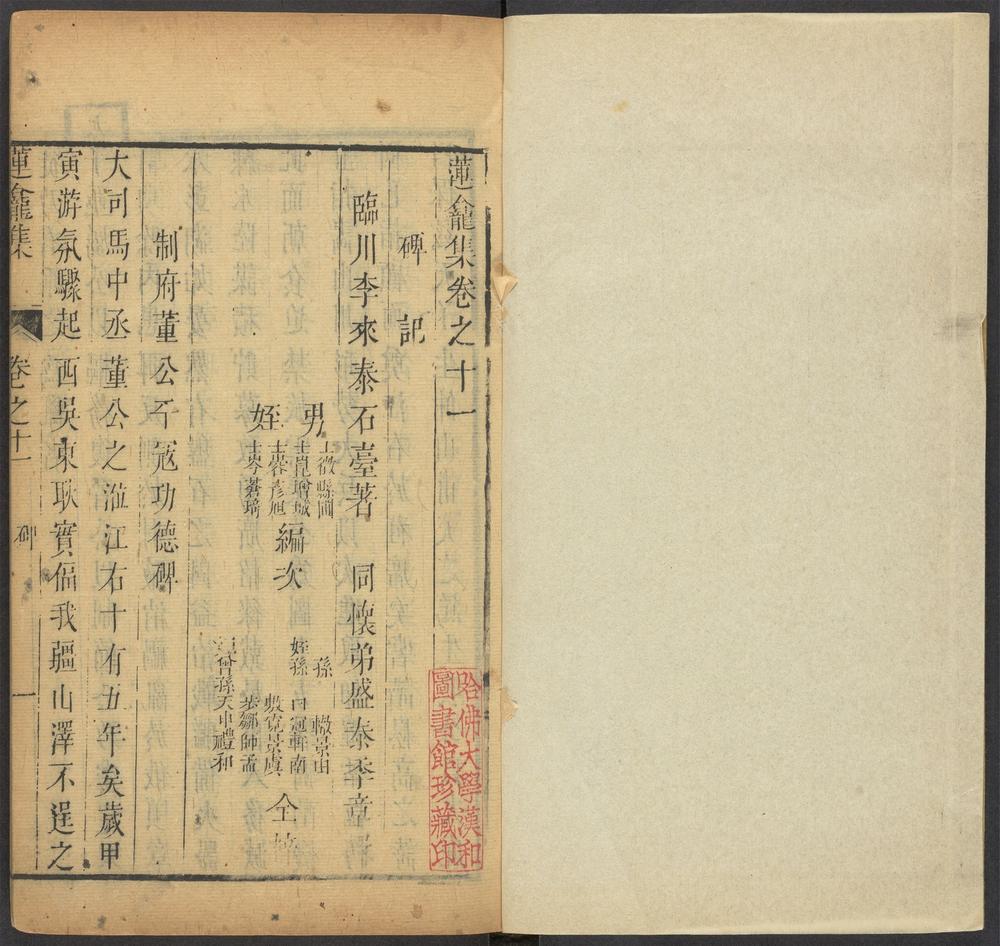 蓮龕集卷之十一
碑記
臨川李來泰石臺著　同懷弟盛泰季章
男
姪
士徵縣圃
士崑增城
士蓉彥旭
士岑蒼璿
編次
孫
姪孫
曾孫天申禮和
敷寬景虞
恭鄒師孟
仝
制府董公平寇功德碑
大司馬中丞董公之涖江右十有五年矣歲甲
寅游氛驟起西吳東耿實偪我疆山澤不逞之
蓮龕集
卷之十一
碑
一
哈佛大學漢和
圖書館珍藏印